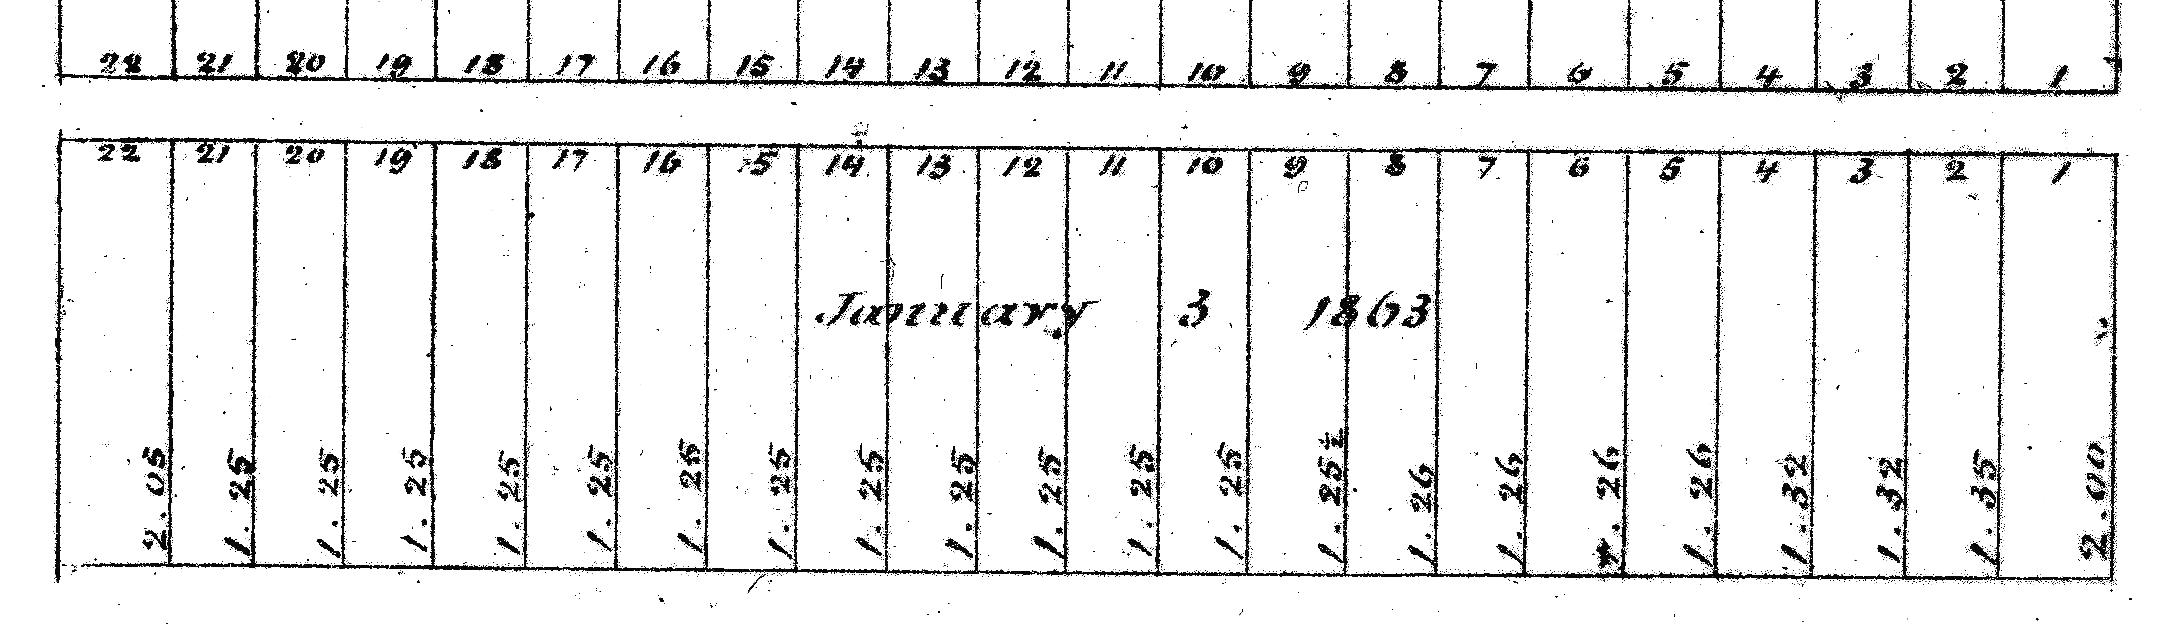 22 21 20 19 18 17 16 15 14 13 12 11 10 9 8 7 6 5 4 3 2 1
22 21 20 19 18 17 16 15 14 13 12 11 10 9 8 7 6 5 4 3 2 1
January 3 1863
2.05 1.25 1.25 1.25 1.25 1.25 1.25 1.25 1.25 1.25 1.25 1.25 1.25 1.25½ 1.26 1.26 1.26 1.26 1.32 1.32 1.35 2.00